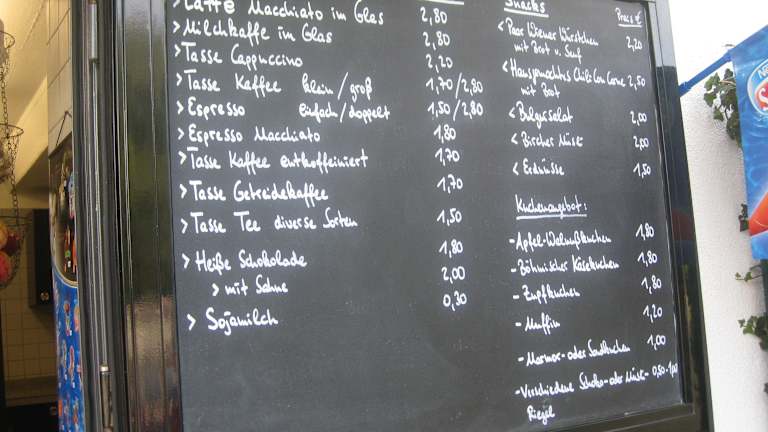 > Latte Macchiato im Glas 2,80
> Milchkaffe im Glas 2,80
> Tasse Cappuccino 2,20
> Tasse Kaffee klein/groß 1,70/2,80
> Espresso einfach/doppelt 1,50/2,80
> Espresso Macchiato 1,80
> Tasse Kaffee entkoffeiniert 1,70
> Tasse Getreidekaffee 1,70
> Tasse Tee diverse Sorten 1,50
> Heiße Schokolade 1,80
> mit Sahne 2,00
> Sojamilch 0,30
Snacks Preis €
< Paar Wiener Würstchen
mit Brot u. Senf 2,20
< Hausgemachtes Chili Con Carne 2,50
mit Brot
< Bulgursalat 2,00
< Bircher Müsli 2,00
< Erdnüsse 1,50
Kuchenangebot:
- Apfel-Walnußkuchen 1,80
- Böhmischer Käsekuchen 1,80
- Zupfkuchen 1,80
- Muffin 1,20
- Marmor- oder Sandkuchen 1,00
- Verschiedene Schoko- oder Müsli- 0,50-1,00
Riegel